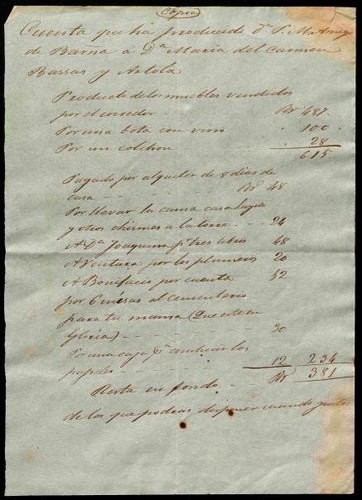 Copia
Cuenta que ha producido Dn. P. M. Amigó
de Barna á Da. Maria del Carmen
Barras y Artola
Producto de los muebles vendidos
por el corredor Rs. 487
Por una bota con vino 100
Por un colchon 28
615
Pagado por alquiler de 8 dias de
casa Rs. 48
Por llevar la cama
y otros chismes a la torre 24
A Da. Joaquina pr. tres 48
A Ventura por los plumeros 20
A Bonifacio por cuenta 52
por 6 al cementerio
para tu mama (Que esté en
Gloria) 30
Por una caja pa. conducir los
papeles 12 234
Rs. 381
Resta en fondo
de los que podras disponer cuando gustes